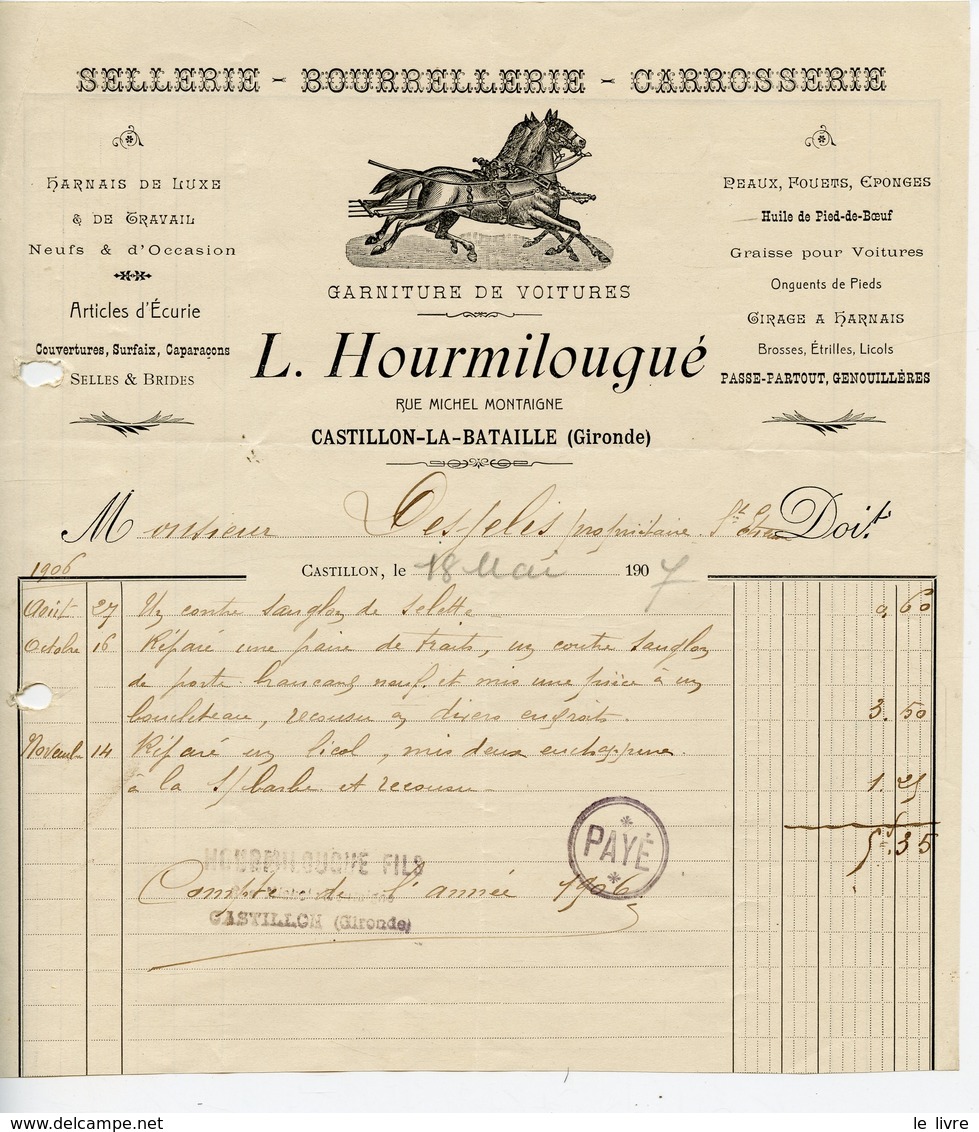 SELLERIE - BOURRELLERIE - CARROSSERIE
HARNAIS DE LUXE
& DE TRAVAIL
Neufs & d'Occasion
Articles d'Écurie
Couvertures, Surfaix, Caparaçons
SELLES & BRIDES
GARNITURE DE VOITURES
L. Hourmilougué
RUE MICHEL MONTAIGNE
CASTILLON-LA-BATAILLE (Gironde)
PEAUX, FOUETS, EPONGES
Huile de Pied-de-Bœuf
Graisse pour Voitures
Onguents de Pieds
CIRAGE A HARNAIS
Brosses, Étrilles, Licols
PASSE-PARTOUT, GENOUILLÈRES
Monsieur Desfelis propriétaire Doit
CASTILLON, le 18 Mai 1907
1906
Août 27 Un contre sanglon de selette 0,60
Octobre 16 Réparé une paire de traits, un contre sanglon
de porte brancard neuf et mis une pièce à un
boucleteau, recousu en divers endroits. 3.50
Novembre 14 Réparé un licol, mis deux enchappures
à la s/barbe et recousu 1.25
5f.35
PAYÉ
HOURMILOUGUÉ FILS
Compte de l'année 1906
CASTILLON (Gironde)
www.delcampe.net
le livre